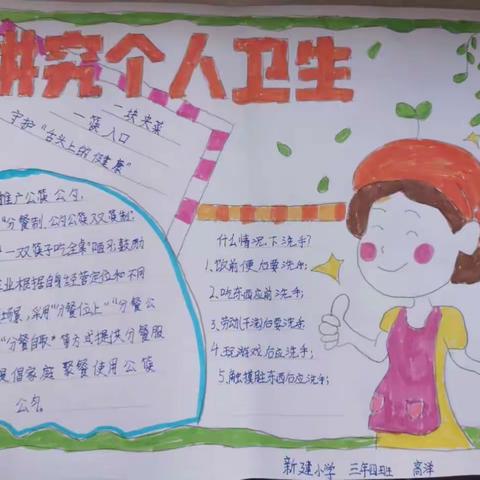 讲究个人卫生
一块夹菜
一筷入口
守护“舌头上的健康”
推广公筷公勺,
“分餐制、公勺公筷双筷制”
一双筷子吃全桌”陋习鼓励
业根据自身经营定位和不同
场景,采用“分餐位上”“分餐公
“分餐自取”等方式提供分餐服
提倡家庭聚餐使用公筷
公勺。
什么情况下洗手?
1.饭前便后要洗手;
2.吃东西应前洗手;
3.劳动(干活)后要洗手
4.玩游戏后应洗手;
5.触摸脏东西后应洗手;
新建小学 三年四班 高洋